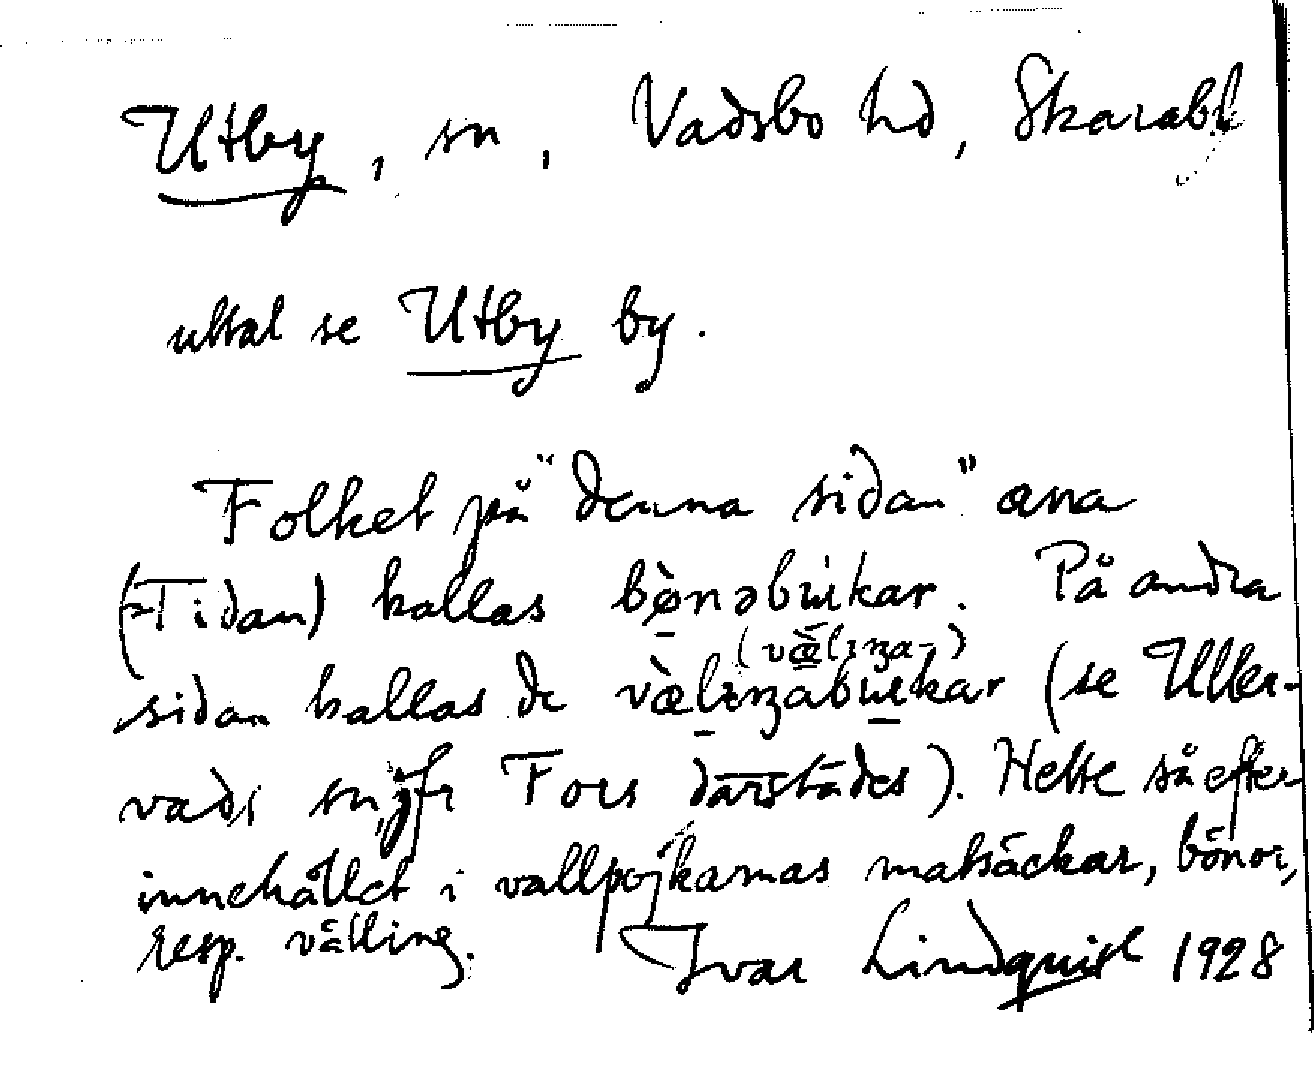 Utby, sn, Vadsbo hd, Skarabl
uttal se Utby by.
Folket på "denna sidan" åena
(Tidan) kallas bø̀nəbɯkar. På andra
(væ̀lıŋa-)
sidan kallas de væ̀lıŋabɯkar (se Uller-
vads sn, jfr Fors därstädes). Hette så efter
innehållet i vallpojkarnas matsäckar, bönor,
resp. välling. Ivar Lindquist 1928